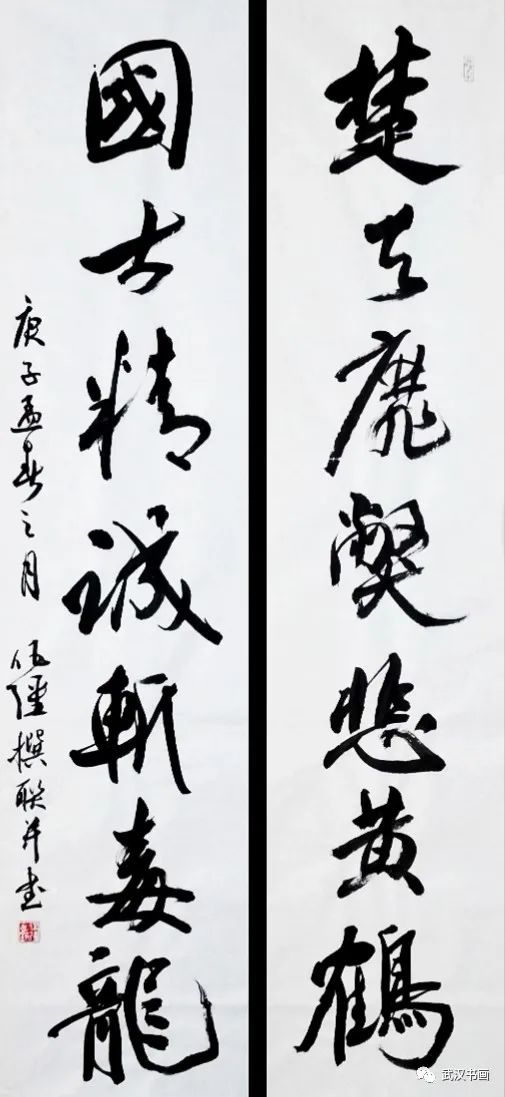 楚天獘悲黄鶴
國士精誠斬毒龍
庚子孟春之月 撰聯并书
武汉书画